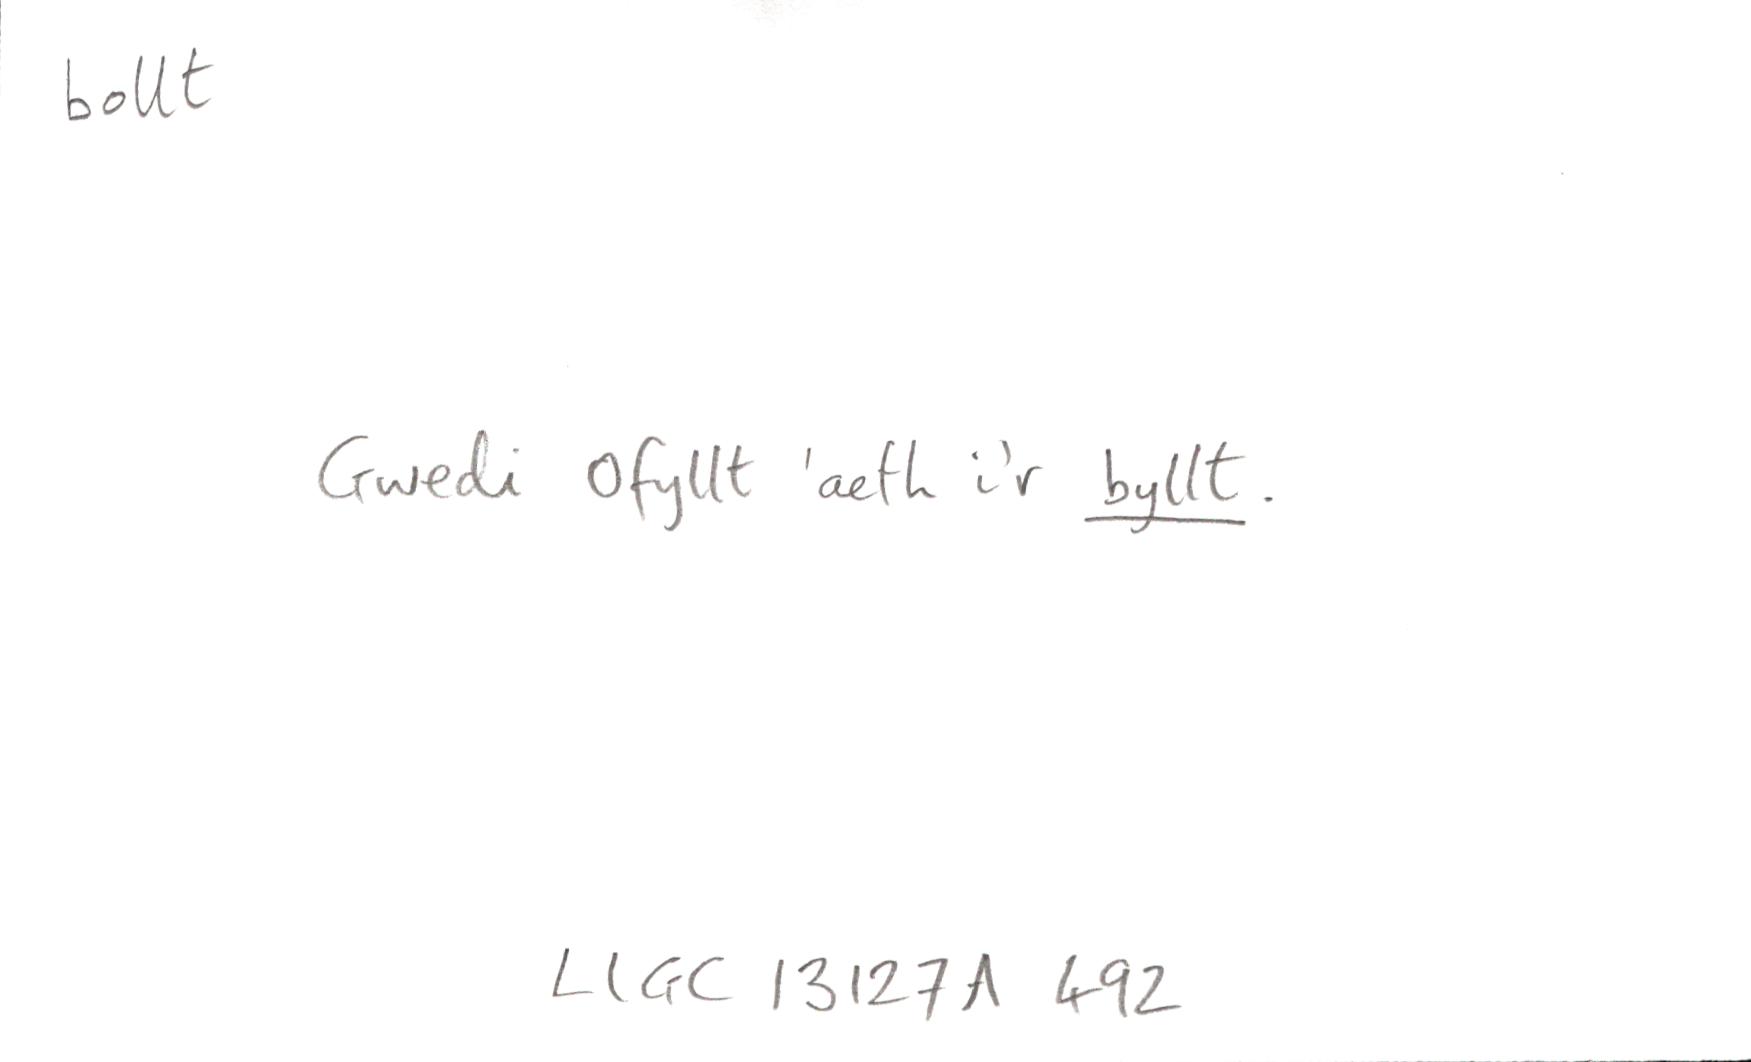 bollt
Gwedi Ofyllt 'aeth i'r byllt.
LlGC 13127A 492